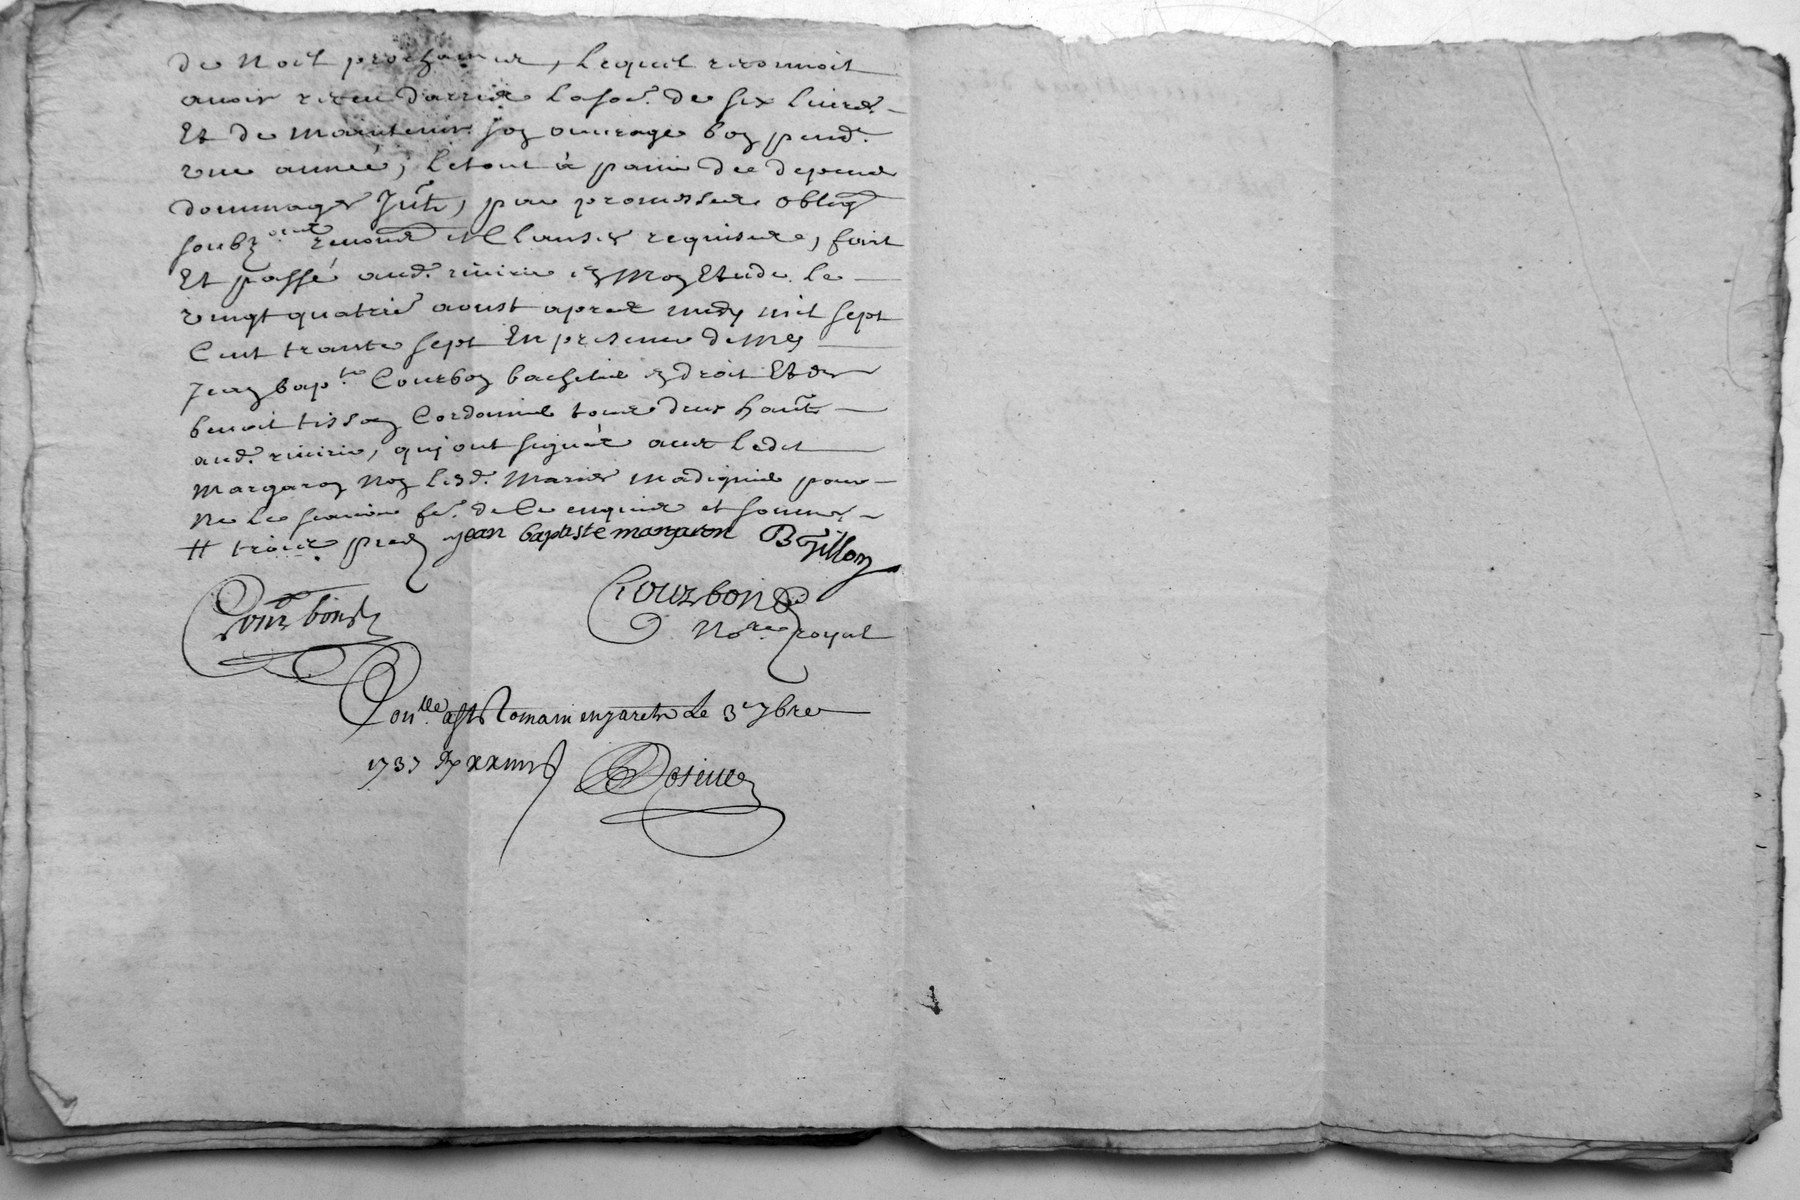 de Noel prochaines, Lequel reconnoit
avoir receu d'arrhe la so.e de six livres
Et de maintenir son ouvrage bon pend.t
une année, le tout à paine de depens
dommages Jntts, par promesses oblig
soubz renond et Clauses requises, fait
Et passé aud. riviere en Mon Etude le
vingt quatrie aoust apres midy mil sept
Cent trante sept En presence de Mes
Jean bap.te Courbon bachelie en droit Et de
benoit tisson Cordonnie tous deux haūts
aud. riviere, qui ont signés avec ledit
Margaron Non lesd. Maries pour
Ne le scavoir fe. de Ce enquis et sommes
# trois jean baptiste margaron B Tillon
Courbon Courbon
No.re royal
Con.lle a st Romain en jarets Le 3e 7bre
1737